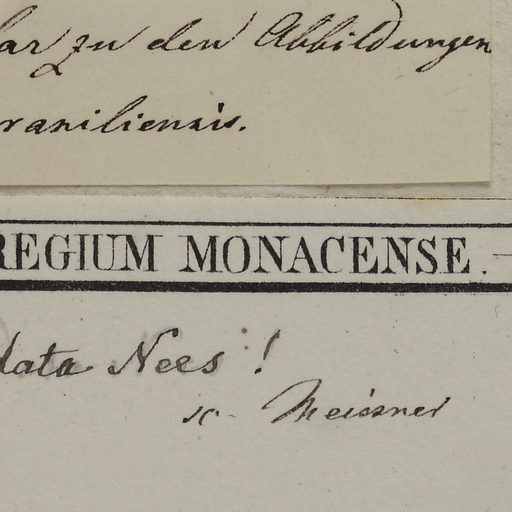 lar zu den Abbildungen
rasiliensis.
REGIUM MONACENSE.
data Nees !
sc. Meissner